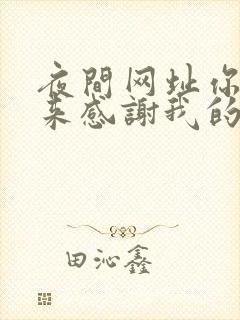 夜間网址你
来感謝我的
田沁鑫